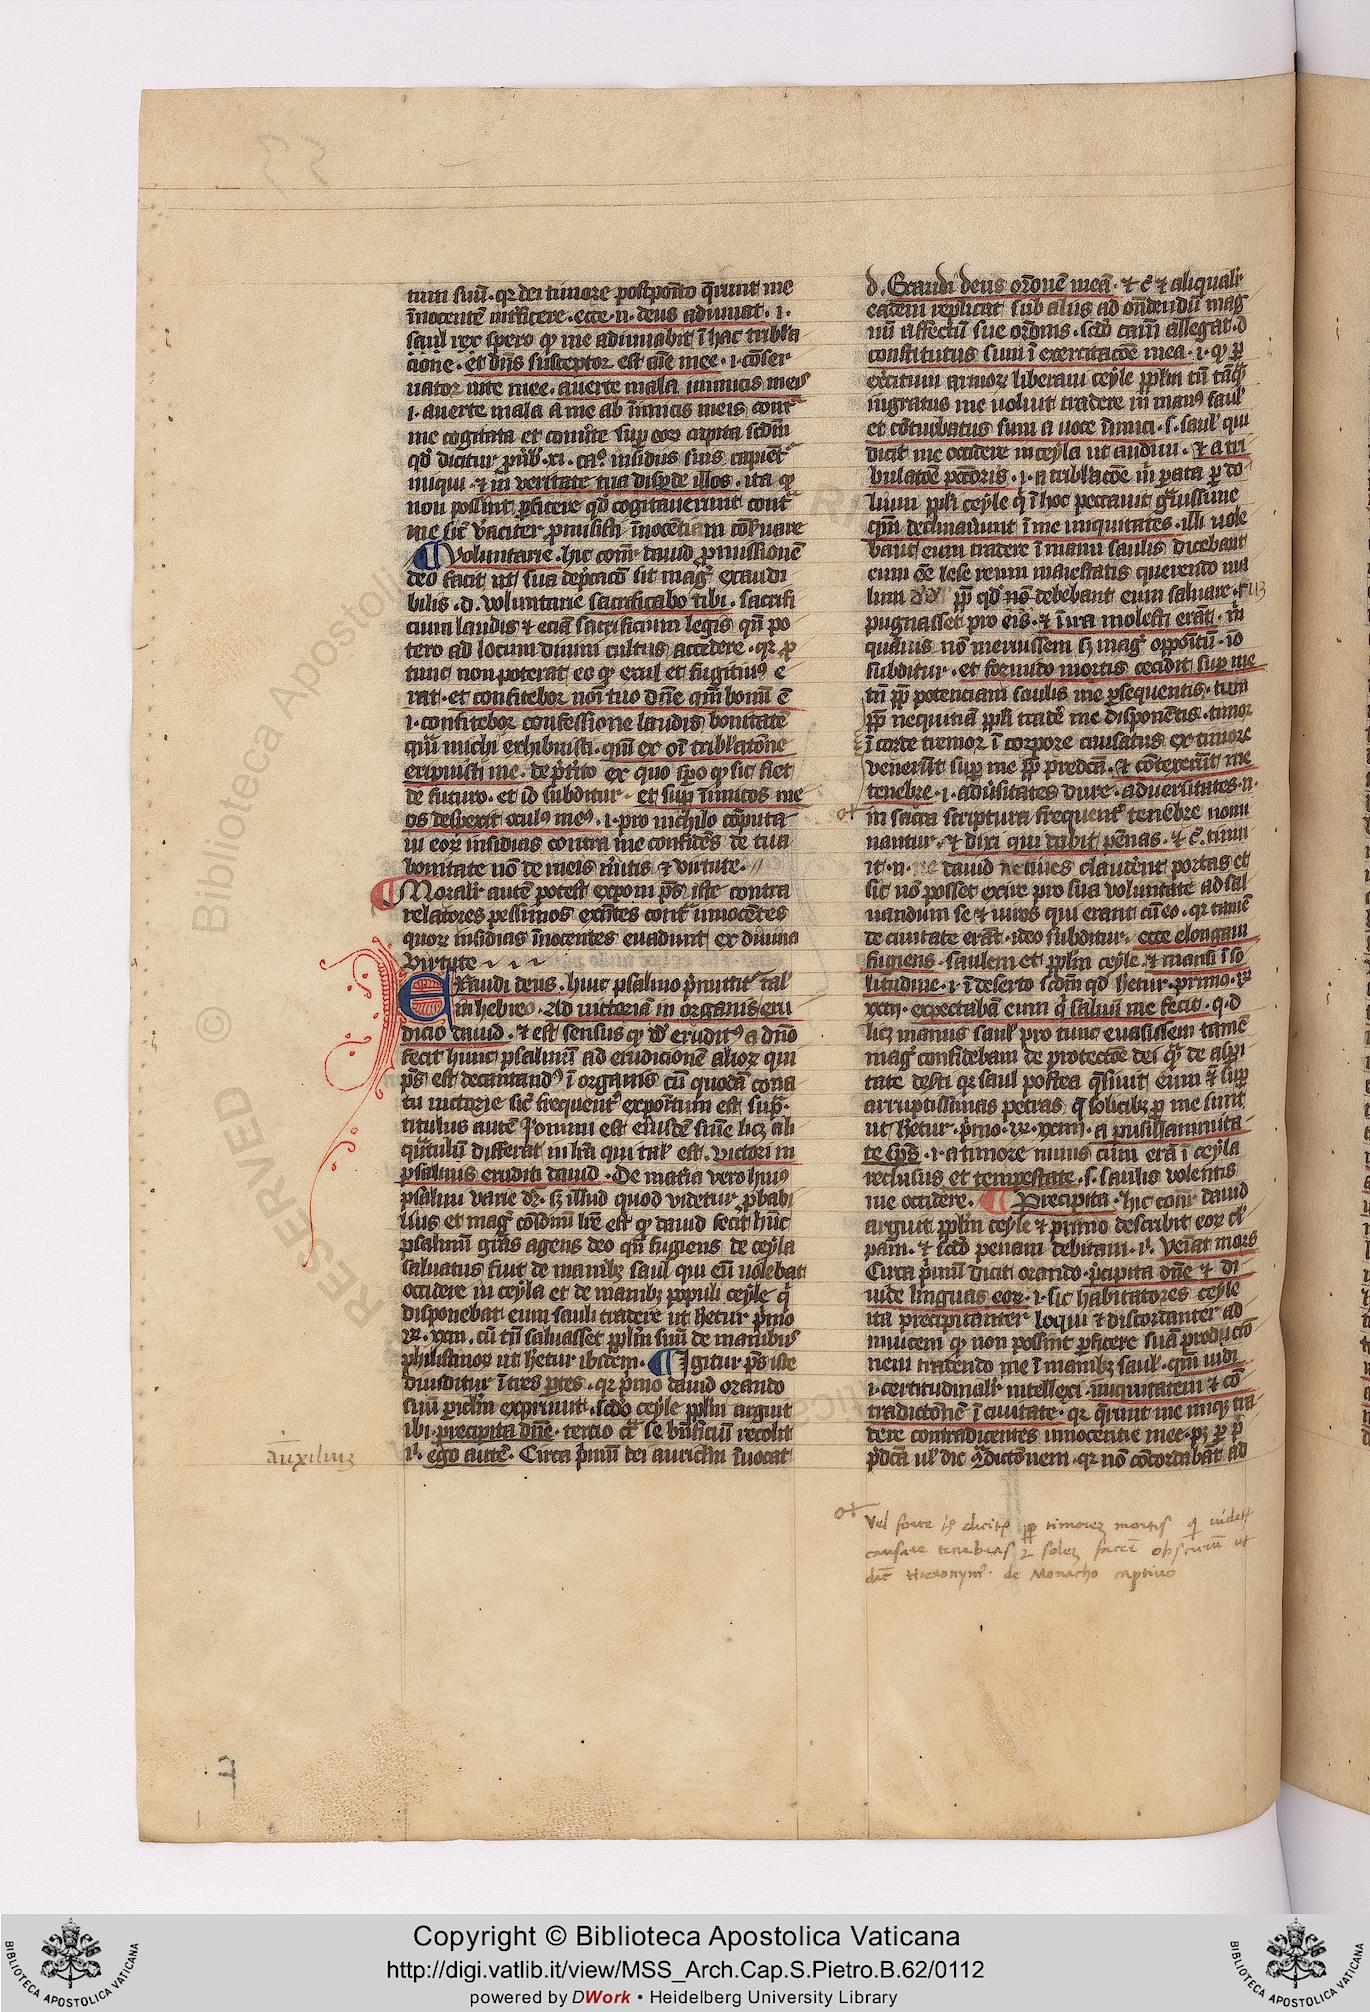 tum suu͂. qr dei timore postpo͂ito q͂runt me
i͂nocente͂ interficere. ecce .n. deus adiuuat. i.
saul rex spero qꝫ me adiuuabit i͂ hac tribl'a
cione. et dn͂s susceptor est ai͂e mee. i. co͂ser
uator uite mee. auerte mala inimicis meis
i. auerte mala a me ab i͂nimicis meis cont͂
me cogitata et co͂uerte sup eoꝝ capita scd͂m
qd' dicitur pu͂b'. xi. ca°. insidiis suis capient'
iniqui. ⁊ in ueritate tua disp͂de illos. ita qꝫ
non possint p͂ficere qd' cogitauerunt cont͂
me sic' u͂aciter p͂misisti i͂noce͂tiam co͂s'uare
¶ Voluntarie. hic co͂r dauid p͂missione͂
deo facit ut sua dep͂caco͂ sit mag͂ exaudi
bilis. d. uoluntarie sacrificabo tibi. sacrifi
cium laudis ⁊ ecia͂ sacrificium legis qn͂ po
tero ad locum diuini cultus accedere. qr p͂
tunc non poterat eo qꝫ exul et fugitiu᾽ e
rat. et confitebor no͂i tuo dn͂e qm͂ bonu͂ e͂
i. confitebor confessione laudis bonitate͂
qu͂a michi exhibuisti. qm͂ ex oi͂ tribl'ato͂ne
eripuisti me. de p͂t'ito ex quo sp͂o qꝫ sic fiet
de futuro. et io͂ subditur. et sup i͂nimicos me
os despexit ocul᾽ me᾽. i. pro nichilo co͂puta
ui eoꝝ insidias contra me confide͂s de tua
bonitate no͂ de meis m͂itis ⁊ uirtute.
¶ Moralr' aute͂ potest exponi p͂s iste contra
relatores pessimos exn͂tes cont͂ innoce͂tes
quoꝝ insidias i͂nocentes euadunt ex diuina
uirtute
Exaudi deus. huic psalmo p͂mittit' tal'
in hebreo. Ad uictoria͂ in organis eru
dicio dauid. ⁊ est sensus qꝫ dd' erudit᾽ a dn͂o
fecit hunc psalmu͂ ad erudicione͂ alioꝝ qui
p͂s est decantand᾽ i͂ organis cu͂ quoda͂ cona
tu uictorie sic' frequent' expo͂itum est sup͂.
titulus aute͂ Ieronimi est eiusde͂ sn͂ie licꝫ ali
qu͂tulu͂ differat in lr͂a qui tal' est. uictori in
psalmis eruditi dauid. De mat'ia uero hui᾽
psalmi uarie dr͂. sꝫ illud quod uidetur p͂babi
lius et mag͂ co͂sonu͂ lr͂e est qꝫ dauid fecit hu͂c
psalmu͂ gra͂s agens deo qn͂ fugiens de ceyla
saluatus fuit de manibꝫ saul qui eu͂ uolebat
occidere in ceyla et de manibꝫ populi ceyle q͂
disponebat eum sauli tradere ut hetur p͂mo
R͂. xxiii. cu͂ tn͂ saluasset ppl'm suu͂ de manibus
philistinoꝝ ut hetur ibidem. ¶ Igitur p͂s iste
diuiditur i͂ tres p͂tes. qr p͂mo dauid orando
suu͂ p͂icl'm exprimit. sc͂do ceyle ppl'm arguit
ibi. precipita dn͂e. tercio ci͂ se bn͂ficiu͂ recolit
i'. ego aute͂. Circa p͂mu͂ dei auxiliu͂ i͂uocat
auxilium
d. Exaudi deus oro͂ne͂ mea͂. ⁊ c͂ ⁊ aliqualr'
eadem replicat sub aliis ad on͂dendu͂ mag
nu͂ affectu͂ sue oro͂nis. scd͂o cam͂ allegat. d
constitutus sum i͂ exercitaco͂e mea. i. qꝫ p͂
exercitum armoꝝ liberaui ceyle ppl'm tn͂ ta͂qꝫ
ingratus me uoluit tradere in man᾽ saul'
et co͂turbatus sum a uoce i͂nimici. s. saul' qui
dicit me occidere in ceyla ut audiui. ⁊ a tri
bulaco͂e pcc͂oris. i. a tribl'aco͂e m͂ pata p͂ do
lum ppl'i ceyle q͂ i͂ hoc peccauit g͂uissime
qm͂ declinauerunt i͂ me iniquitates. illi uole
bant eum tradere i͂ manu saulis dicebant
eum ee͂ lese reum maiestatis querendo ma
lum dd' pp͂ qd' no͂ debebant eum saluare. cuꝫ
pugnasset pro eis. ⁊ i͂ ira molesti era͂t. m͂
qua͂uis no͂ meruissem sꝫ mag͂ oppo͂itu͂. io͂
subditur. et formido mortis cecidit sup me
tu͂ pp͂ potenciam saulis me p͂sequentis. tum
pp͂ nequicia͂ ppl'i trade͂ me dispone͂tis. timor
i͂ corde tremor i͂ corpore causatus ex timore
uenerut͂ sup me pp͂ predc͂a. ⁊ co͂texeru͂t me
tenebre. i. adu͂sitates dure. aduersitates .n.
in sacra scriptura frequent' tenebre nomi
nantur. ⁊ dixi quis dabit pe͂nas. ⁊ c͂. timu
it .n. dauid ne ciues clauderent portas et
sic no͂ posset exire pro sua uoluntate ad sal
uandum se ⁊ uiros qui erant cu͂ eo. qr tame͂
de ciuitate exi͂t. ideo subditur. ecce elongaui
fugiens. saulem et ppl'm ceyle. ⁊ mansi i͂ so
litudine. i. i͂ deserto scd͂m qd' hetur. primo. R͂
xxiii. expectaba͂ eum q͂ saluu͂ me fecit. q. d
licꝫ manus saul' pro tunc euasissem tame͂
mag͂ confidebam de protecco͂e dei qu͂a de asp͂i
tate deserti qr saul postea q͂siuit eum et͂ sup
arruptissimas petras. q͂ solis ibicibꝫ p͂ me sunt
ut hetur. p͂mo. R͂. xxiiii. a pusillanimita
te sp͂s. i. a timore nimis cum era͂ i͂ ceyla
reclusus et tempestate. s. saulis uolentis
me occidere. ¶ Precipita. hic co͂r dauid
arguit ppl'm ceyle ⁊ primo describit eoꝝ cl'
pam. ⁊ scd͂o penam debitam. i'. Veniat mors
Circa p͂imu͂ dicit orando. p͂cipita dn͂e ⁊ di
uide linguas eoꝝ. i. sic habitatores ceyle
ita precipitanter loqui ⁊ discordanter ad
inuicem qꝫ non possint p͂ficere sua͂ producto
nem tradendo me i͂ manibꝫ saul'. qm͂ uidi
i. certitudinalr' intellexi. i͂niquitatem ⁊ co͂
tradicto͂ne͂ i͂ ciuitate. qr q͂runt me iniqꝫ tra
dere contradicentes innocentie mee. pꝫ p͂ p͂
p͂dc͂a ul' dic 9͂dicto͂nem. qr no͂ co͂cordaba͂t ad
Vel forte hꝫ dicitꝝ pp timorez mortis qi uidetr
causare tenebras ⁊ solez facere obscurum ut
dicit Hieronym᾽. de Monacho captiuo
Copyright © Biblioteca Apostolica Vaticana
http://digi.vatlib.it/view/MSS_Arch.Cap.S.Pietro.B.62/0112
powered by DWork • Heidelberg University Library
BIBLIOTECA APOSTOLICA VATICANA
BIBLIOTECA APOSTOLICA VATICANA